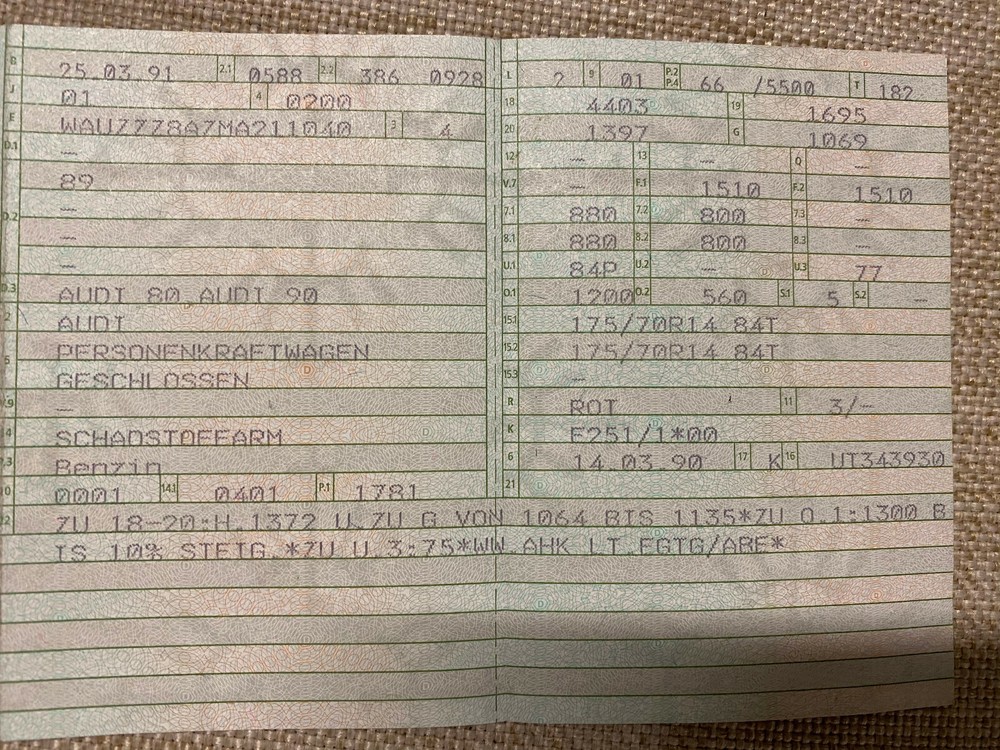 B 25.03.91 2.1 0588 2.2 386 0928
J 01 4 0200
E WAUZZZ8AZMA211040 3 4
D.1 —
89
D.2 —
—
—
D.3 AUDI 80 AUDI 90
2 AUDI
5 PERSONENKRAFTWAGEN
GESCHLOSSEN
V.9 —
14 SCHADSTOFFARM
P.3 Benzin
10 0001 14.1 0401 P.1 1781
L 2 9 01 P.2 P.4 66 /5500 T 182
18 4403 19 1695
20 1397 G 1069
12 — 13 — Q —
V.7 — F.1 1510 F.2 1510
7.1 880 7.2 800 7.3 —
8.1 880 8.2 800 8.3 —
U.1 84P U.2 — U.3 77
O.1 1200 O.2 560 S.1 5 S.2 —
15.1 175/70R14 84T
15.2 175/70R14 84T
15.3 —
R ROT 11 3/—
K F251/1*00
6 14.03.90 17 K 16 UT343930
21
22 ZU 18-20:H.1372 U.ZU G VON 1064 BIS 1135*ZU O.1:1300 B
IS 10% STEIG.*ZU U.3:75*WW.AHK LT.EGTG/ABE*